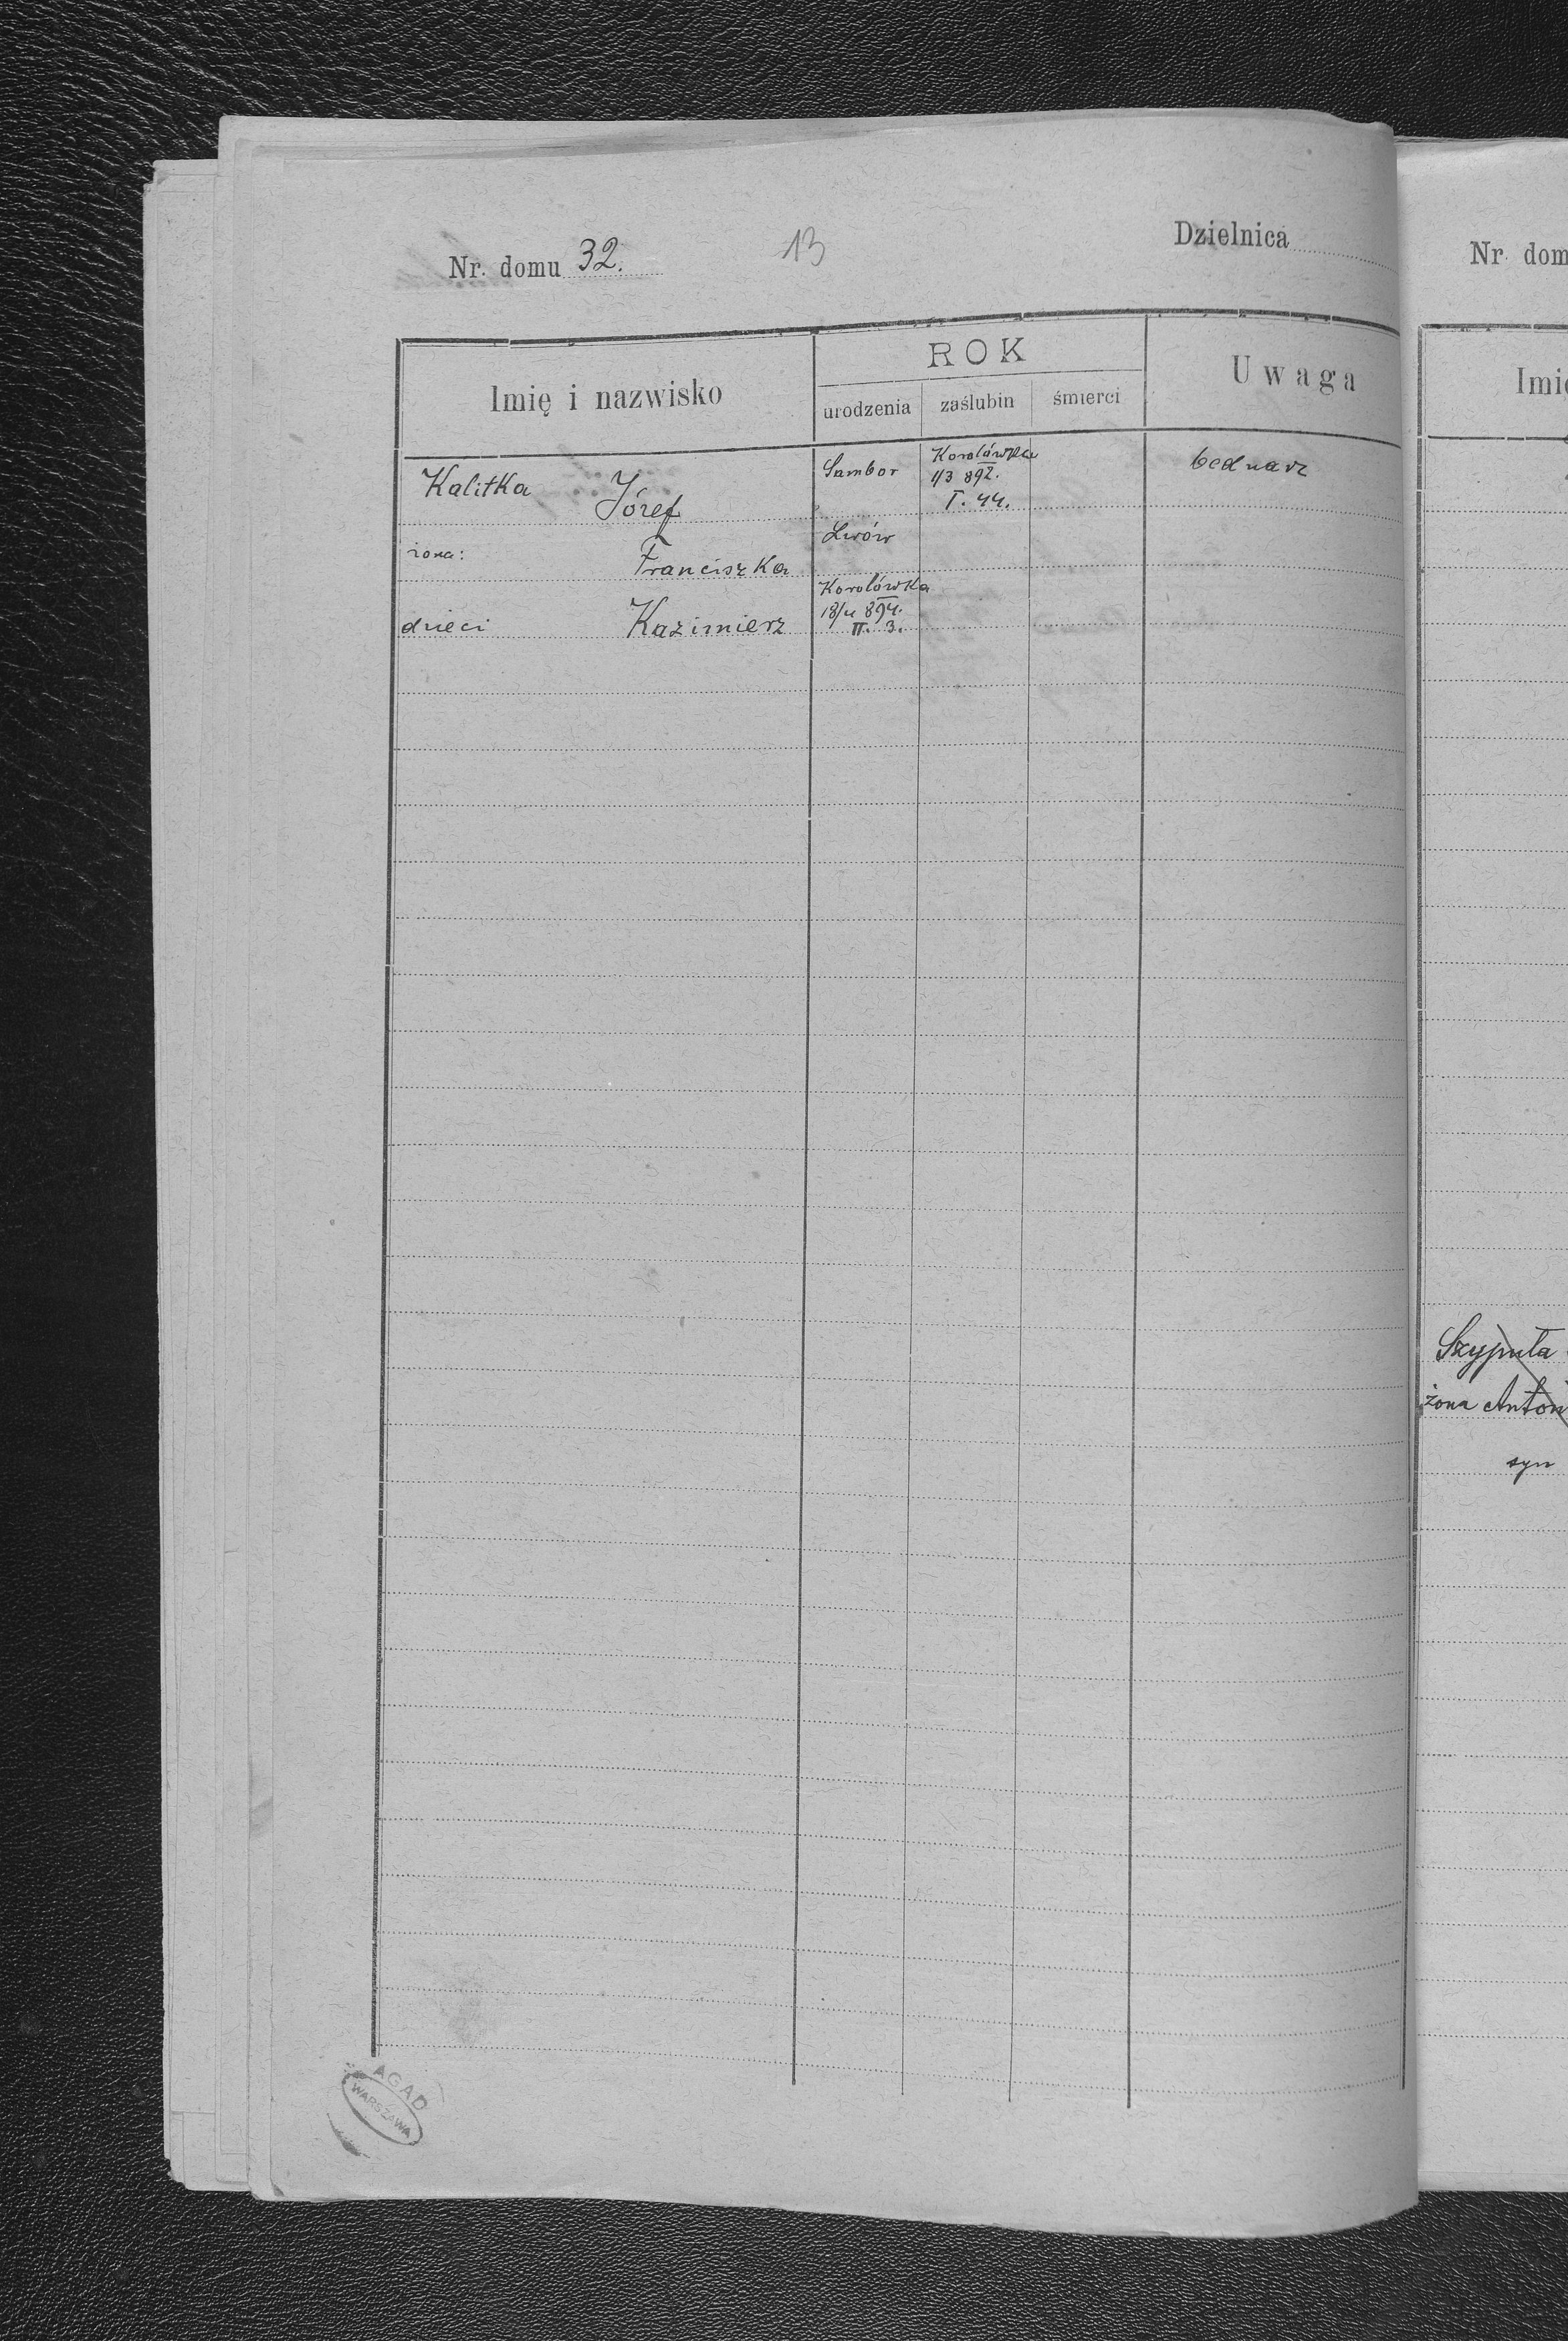 Nr. domu 32.
13
Dzielnica
Imię i nazwisko
ROK
urodzenia zaślubin śmierci
Uwaga
Kalitka Józef Sambor Korolówka bednarz
1/3 892.
I. 44.
żona: Franciszka Lwów
dzieci Kazimierz Korolówka
18/4 894.
II. 3.
AGAD
WARSZAWA
Nr dom
Imię
Szypuła
żona Anton
syn